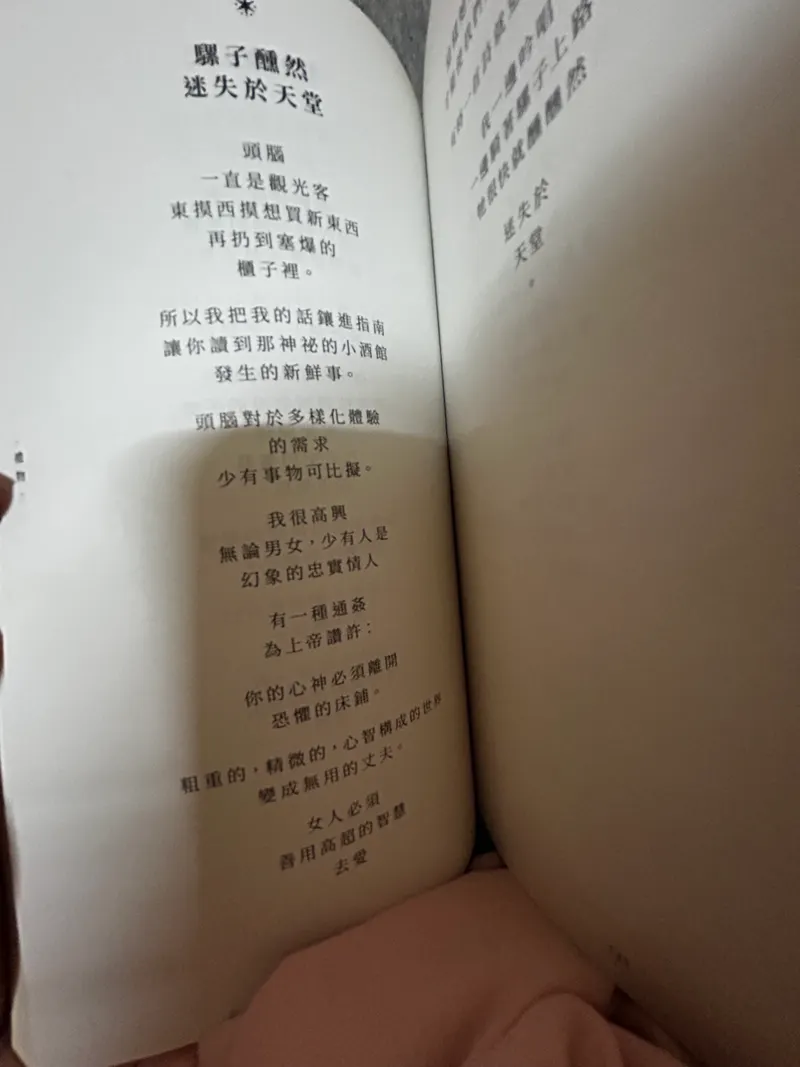 騾子醺然
迷失於天堂
頭腦
一直是觀光客
東摸西摸想買新東西
再扔到塞爆的
櫃子裡。
所以我把我的話鑲進指南
讓你讀到那神祕的小酒館
發生的新鮮事。
頭腦對於多樣化體驗
的需求
少有事物可比擬。
我很高興
無論男女，少有人是
幻象的忠實情人
有一種通姦
為上帝讚許：
你的心神必須離開
恐懼的床鋪。
粗重的，精微的，心智構成的世界
變成無用的丈夫。
女人必須
善用高超的智慧
去愛
我一邊吟唱
一邊騎著騾子上路
牠很快就醺醺然
迷失於
天堂
。